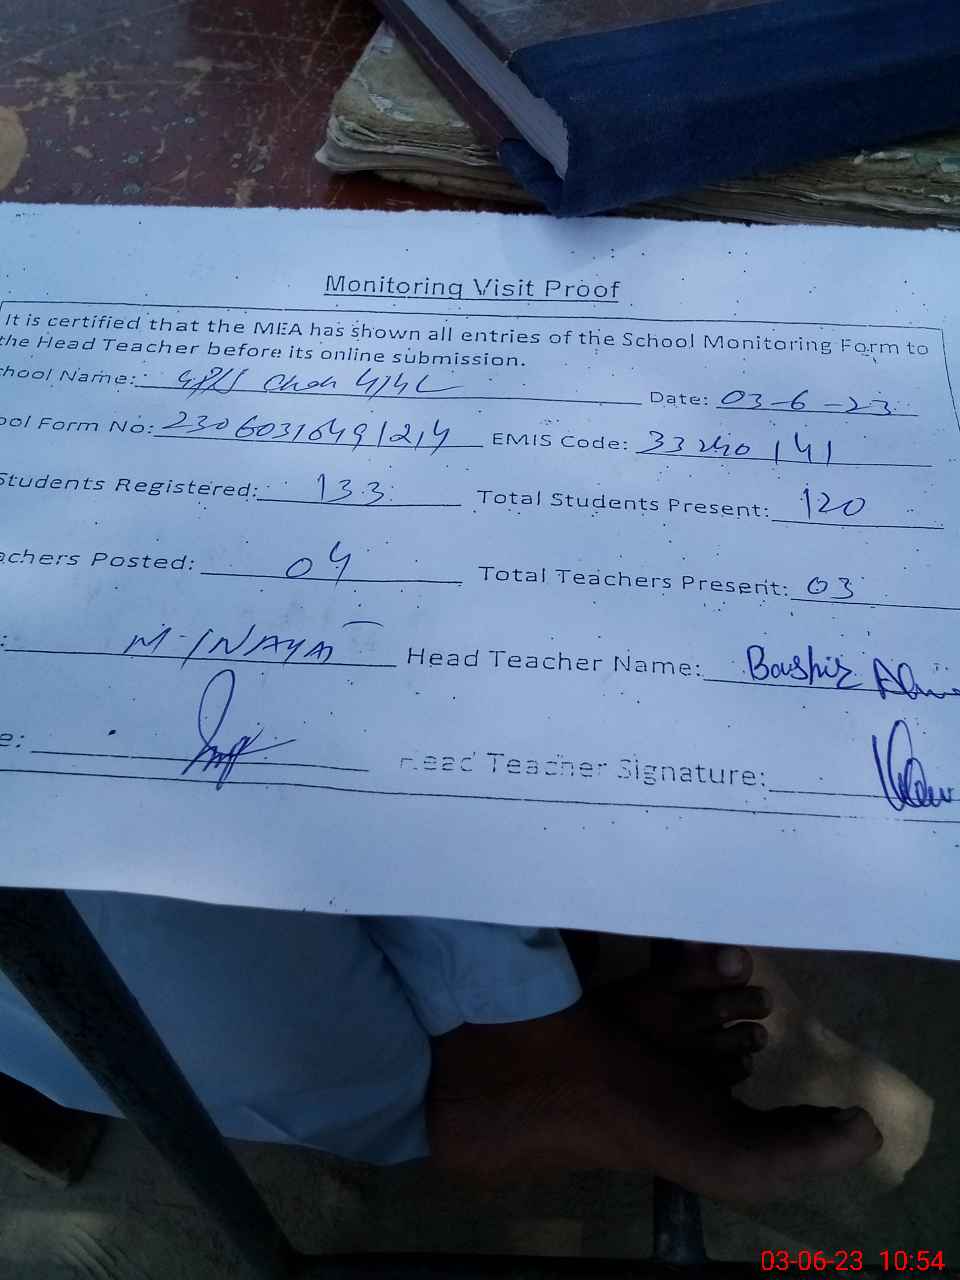 Monitoring Visit Proof
It is certified that the MEA has shown all entries of the School Monitoring Form to
the Head Teacher before its online submission.
hool Name: Chak Date: 03-6-23
ool Form No: EMIS Code:
Students Registered: 133 Total Students Present: 120
achers Posted: 04 Total Teachers Present: 03
: M-INAYAT Head Teacher Name: Bashir
e: Head Teacher Signature:
03-06-23 10:54